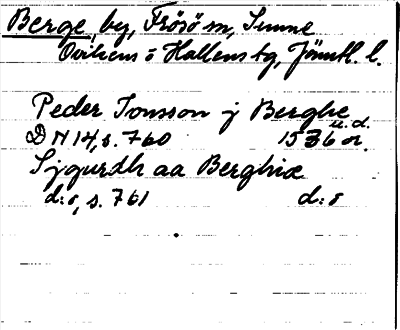 Berge, by, Frösö sn, Sunne
Ovikens o Hallens tg, Jämtl. l.
Peder Jonsson j Berghe
u. d.
DN 14, s. 760 1536 or.
Sjgurdh aa Berghæ
d:o, s. 761 d:o